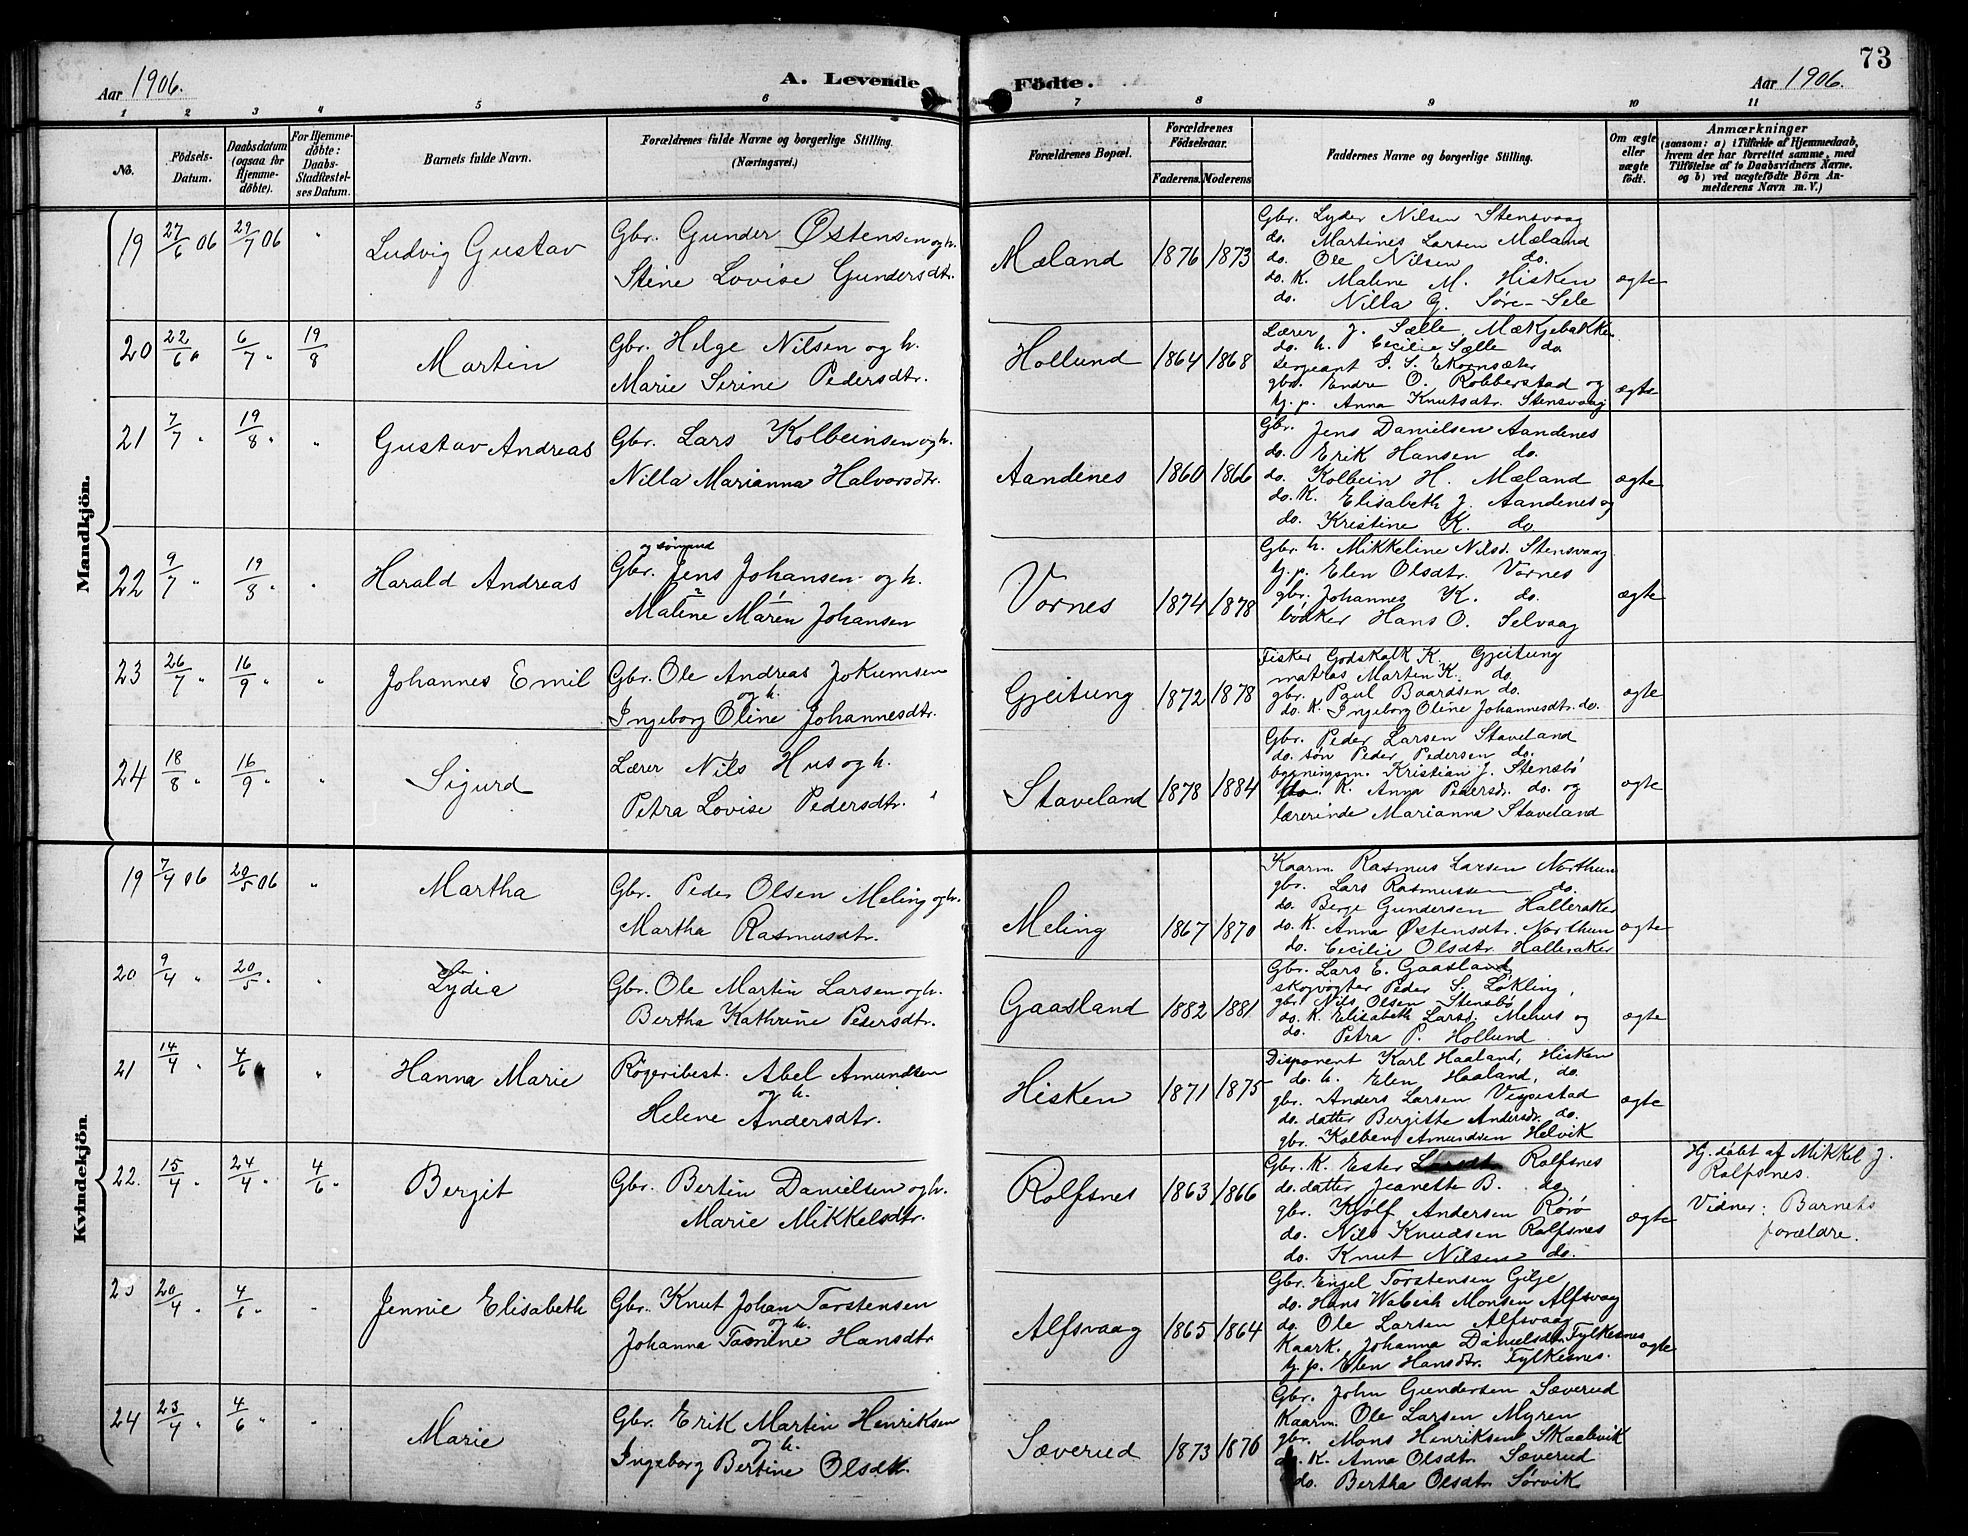 73
Aar 1906.
A. Levende Födte.
Aar 1906.
1 2 3 4 5 6 7 8 9 10 11
No.
Födsels-Datum.
Daabsdatum (ogsaa for Hjemme-döbte).
For Hjemme-döbte: Daabs-Stadfæstel-ses Datum.
Barnets fulde Navn.
Forældrenes fulde Navne og borgerlige Stilling. (Næringsvei.)
Forældrenes Bopæl.
Forældrenes Födselsaar.
Faderens. Moderens
Faddernes Navne og borgerlige Stilling.
Om ægte eller uægte födt.
Anmærkninger
(saasom: a) i Tilfælde af Hjemmedaab, hvem der har forrettet samme, med Tilföielse af to Daabsvidners Navne. og b) ved uægtefödte Börn An-melderens Navn m. V.)
Mandkjön.
19 27/6 06 29/7 06 "
Ludvig Gustav
Gbr. Gunder Østensen og h.
Stine Lovise Gundersdtr.
Mæland 1876 1873
Gbr. Lyder Nilsen Stensvaag
do. Martines Larsen Mæland
do. Ole Nilsen do.
do. K. Malene M. Hisken
do. Nilla G. Søre-Sele
ægte
20 22/6 " 6/7 " 19/8
Martin
Gbr. Helge Nilsen og h.
Marie Serine Pedersdtr.
Hollund 1864 1868
Lærer J. Sælle, Mækjebakke
do. h. Cecilie Sælle do
Sergeant J. S. Ekornsæter
gbr. Endre O. Robberstad og
tj. p. Anna Knutsdtr. Stensvaag
ægte
21 7/7 " 19/8 " "
Gustav Andreas
Gbr. Lars Kolbeinsen og h.
Nilla Marianna Halvorsdtr.
Aandenes 1860 1866
Gbr. Jens Danielsen Aandenes
do. Erik Hansen do.
do. Kolbein H. Mæland
do. K. Elisabeth J. Aandenes og
do. Kristine K. do
ægte
22 9/7 " 19/8 " "
Harald Andreas
og sømand
Gbr. Jens Johansen og h.
2 1
Malene Maren Johansen
Vornes 1874 1878
Gbr. h. Mikkeline Nilsd. Stensvaag
tj. p. Elen Olsdtr. Vornes
gbr. Johannes K. do.
bödker Hans O. Selvaag
ægte
23 26/7 " 16/9 " "
Johannes Emil
Gbr. Ole Andreas Jokumsen
og h.
Ingeborg Oline Johannesdtr.
Gjeitung 1872 1878
Fisker Godskalk K. Gjeitung
matros Martin K. do.
gbr. Paul Baardsen do.
do. K. Ingeborg Oline Johannesdtr. do.
ægte
24 18/8 " 16/9 " "
Sigurd
Lærer Nils Hus og h.
Petra Lovise Pedersdtr.
Staveland 1878 1884
Gbr. Peder Larsen Staveland
do. søn Peder Pedersen do.
bygningsm. Kristian J. Stensbö
do. K. Anna Pedersd. do. og
lærerinde Marianna Staveland
ægte
Kvindekjön
19 7/4 06 20/5 06 "
Martha
Gbr. Peder Olsen Meling og h.
Martha Rasmusdtr.
Meling 1867 1870
Kaarm. Rasmus Larsen Northun
gbr. Lars Rasmussen do.
do. Berge Gundersen Halleraker
do. K. Anna Østensdtr. Northun
do. Cecilie Olsdtr. Halleraker
ægte
20 9/4 " 20/5 " "
Lydia
Gbr. Ole Martin Larsen og h.
Bertha Kathrine Pedersdtr.
Gaasland 1882 1881
Gbr. Lars E. Gaasland,
skogvogter Peder S. Løkling,
gbr. Nils Olsen Stensbø
do. K. Elisabeth Larsd. Mehus og
do. Petra P. Hollund
ægte
21 14/4 " 4/6 "
Hanna Marie
Røgeribest. Abel Amundsen
og h.
Helene Andersdtr.
Hisken 1871 1875
Disponent Karl Haaland, Hisken
do. h. Elen Haaland, do.
gbr. Anders Larsen Vespestad
do. datter Bergitte Andersdr. do.
gbr. Kolben Amundsen Helvik
ægte
22. 15/4 " 24/4 " 4/6 "
Bergit
Gbr. Bertin Danielsen og h.
Marie Mikkelsdtr.
Rolfsnes 1863 1866
Gbr. K. Ester Larsdtr. Rolfsnes
do. datter Jeanette B. do
gbr. Kjølf Andersen Rörö
do. Nils Knudsen Rolfsnes
do. Knut Nilsen do.
ægte
Hj. döbt af Mikkel J.
Rolfsnes.
Vidner: Barnets
forældre.
23 20/4 " 4/6 " "
Jennie Elisabeth
Gbr. Knut Johan Torstensen
og h.
Johanna Hansdtr
Alfsvaag 1865 1864
Gbr. Engel Torstensen Gilje
do. Hans Monsen Alfsvaag
do. Ole Larsen Alfsvaag
Kaark. Johanna Danielsdtr. Fylkesnes
tj. p. Elen Hansdtr. Fylkesnes.
ægte
24 23/4 " 4/6 " "
Marie
Gbr. Erik Martin Henriksen
og h.
Ingeborg Bertine Olsdtr.
Sæverud 1873 1876
Gbr. John Gundersen Sæverud
Kaarm. Ole Larsen Myren
gbr. Mons Henriksen Skaalevik
do. K. Anna Olsdtr. Sæverud
do. Bertha Olsdtr. Sørvik